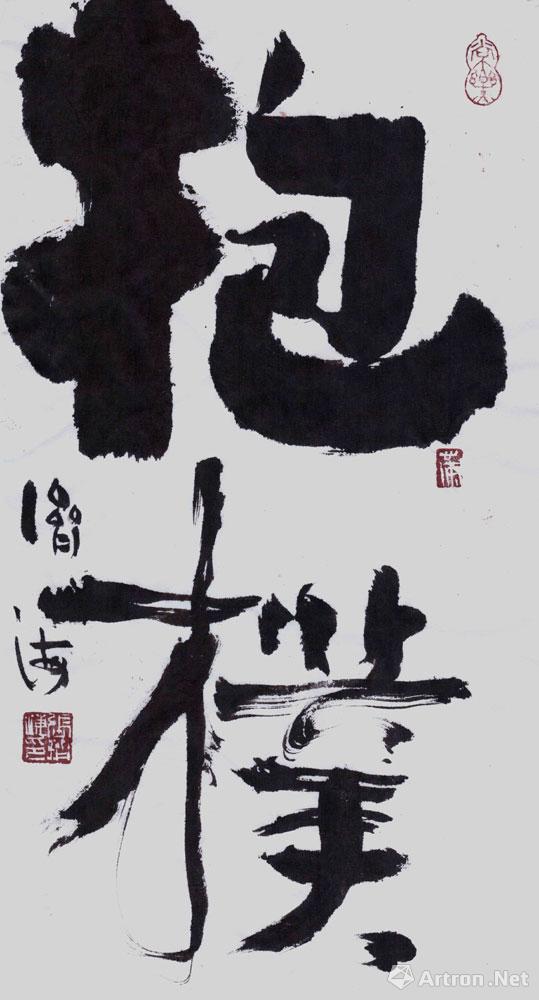 抱
樸
胤海
Artron.Net